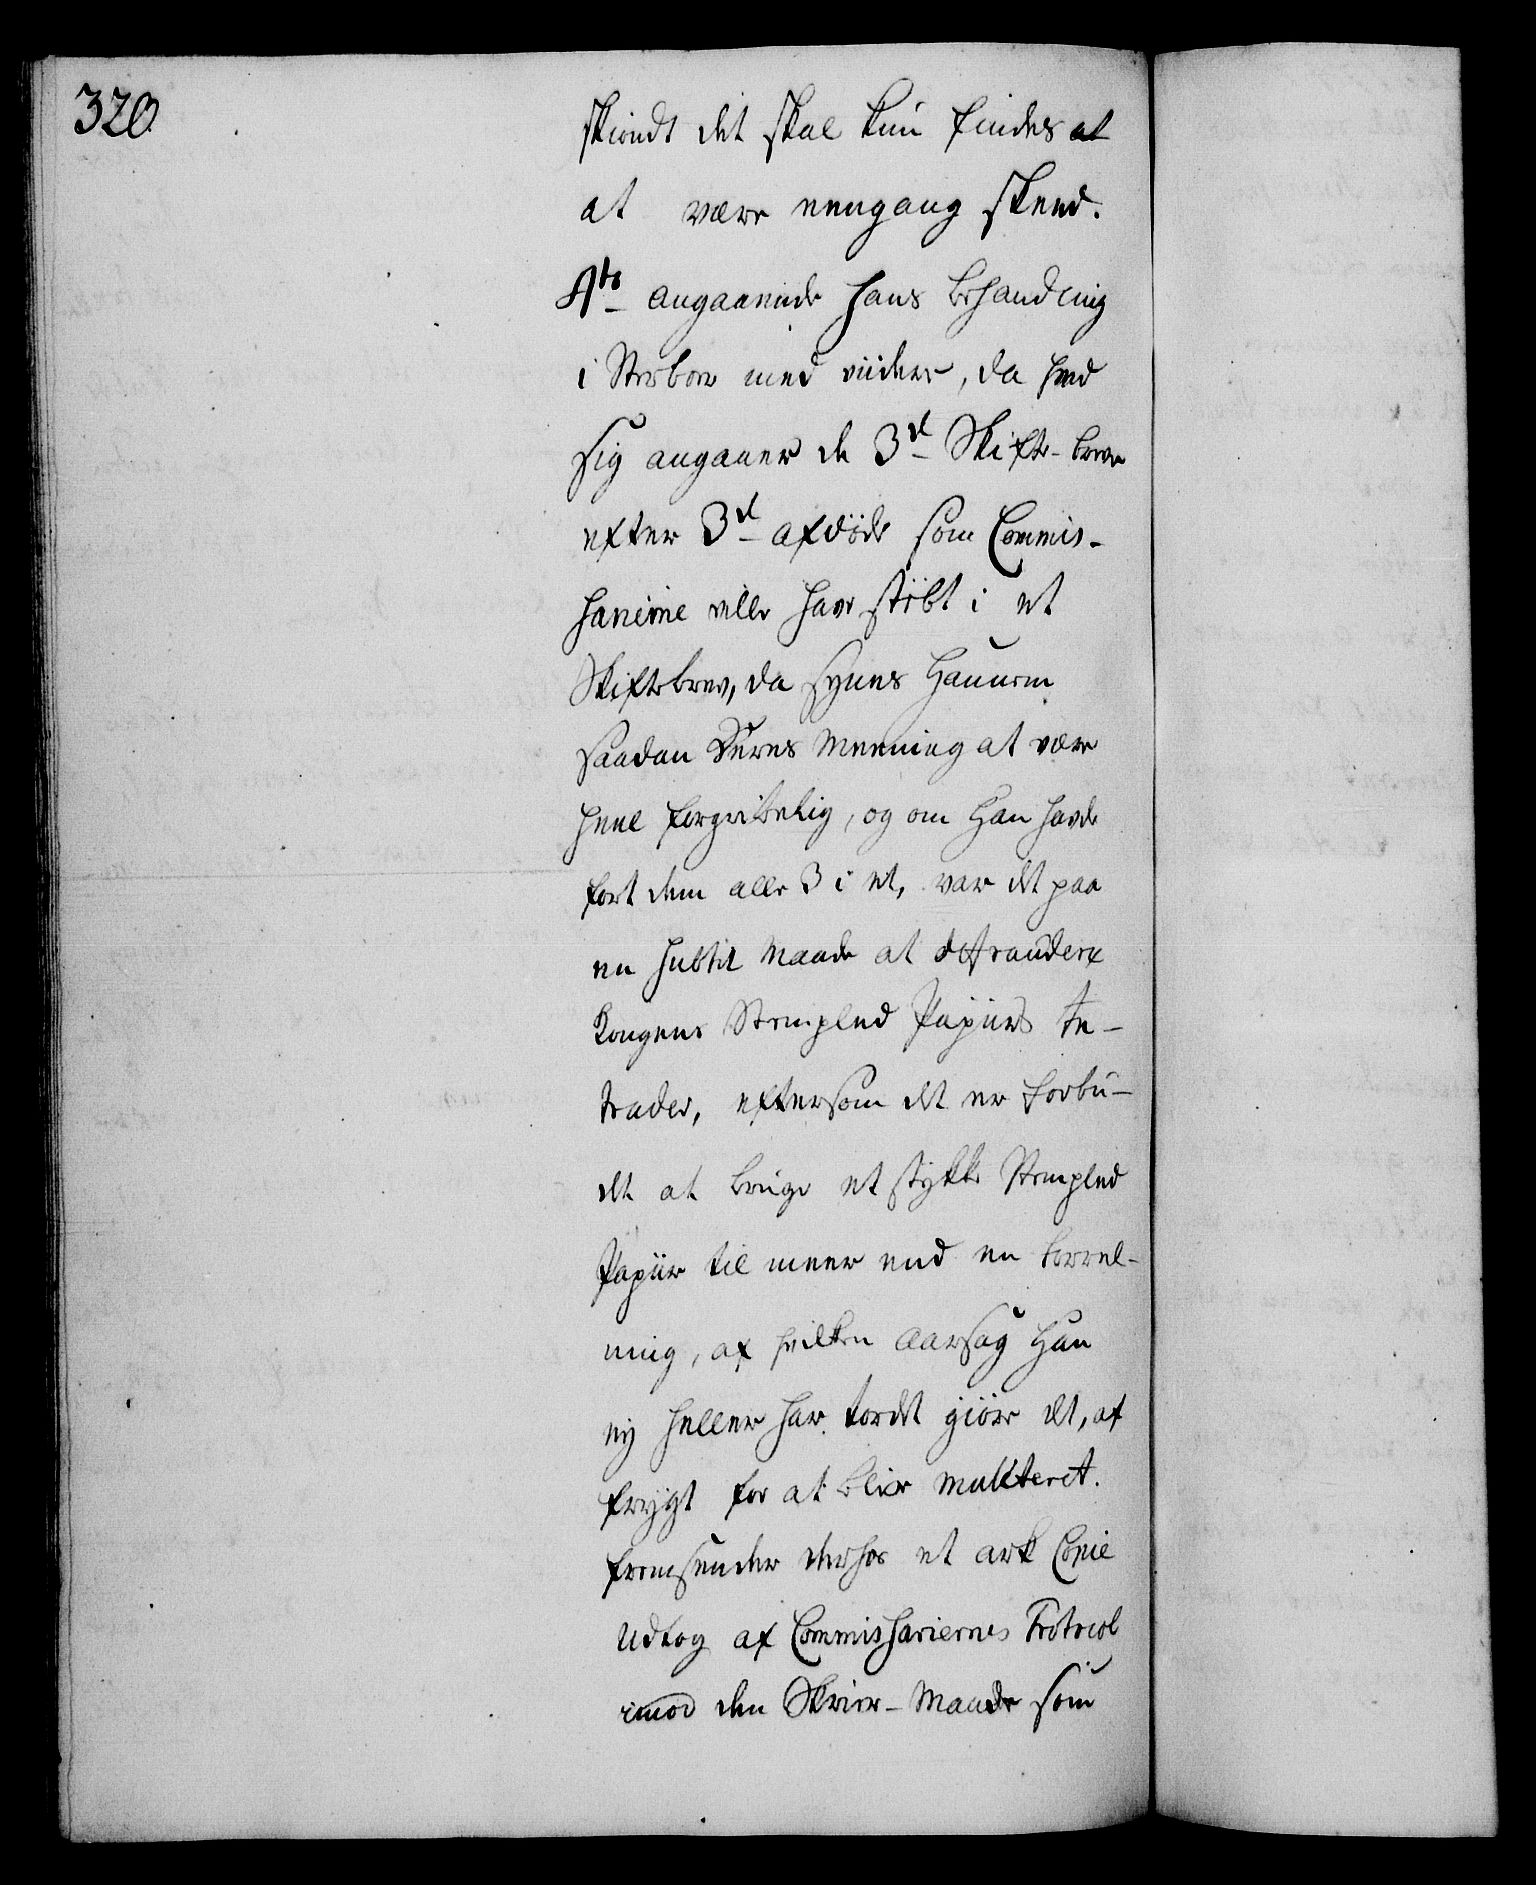 320.
skiøndt det skal kun findes at
at være eengang skeed.
4to angaaende hans behandling
i Sterboer med viidere, da hvad
sig angaaer de 3de Skifte-breve
efter 3de afdöde som Commis-
sarierne ville have støbt i et
Skiftebrev, da synes Hannem
saadan Deres Meening at være
heel forgribelig, og om Han havde
fort dem alle 3 i et, var det paa
en subtil Maade at defraudere
Kongens Stemplede Papiirs In-
trader, eftersom det er forbu-
det at bruge et stykke Stempled
Papiir til meer end en forret-
ning, af hvilken Aarsag Han
ey heller har tordet giöre det, af
frygt for at blive mulcteret.
fremsender derhos et ark Copie
Udtog af Commissariernes Protocol
imod den Skrive-Maade som